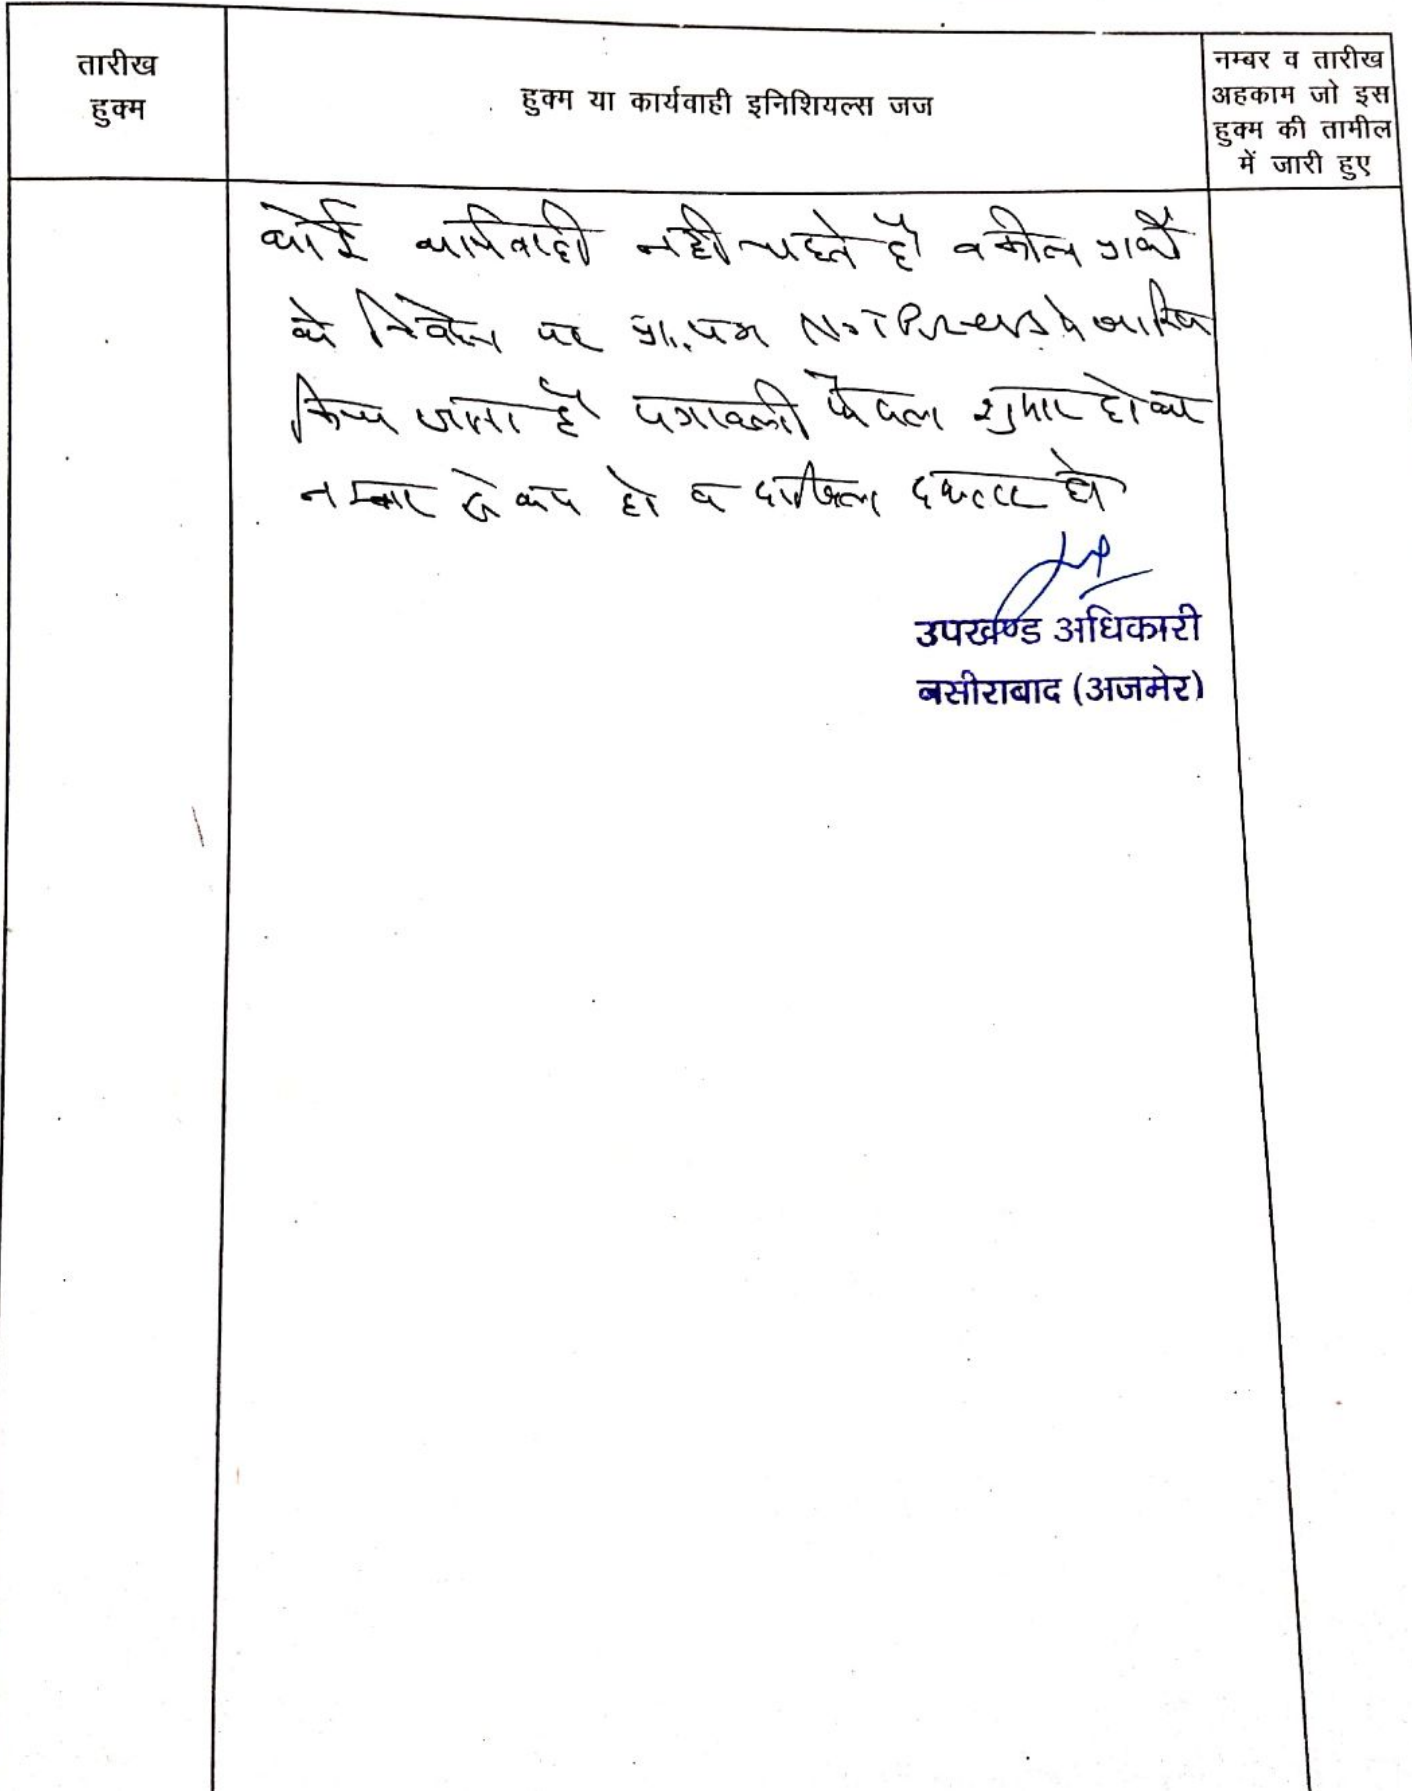 तारीख
हुक्म
हुक्म या कार्यवाही इनिशियल्स जज
नम्बर व तारीख
अहकाम जो इस
हुक्म की तामील
में जारी हुए
कोई कार्यवाही नही चाहते है वकील प्रार्थी
के निवेदन पर प्रा.पत्र Not Press मे खारिज
किया जाता है पत्रावली फैसल शुमार होकर
नम्बर से कम हो व दाखिल दफ्तर हो
उपखण्ड अधिकारी
नसीराबाद (अजमेर)